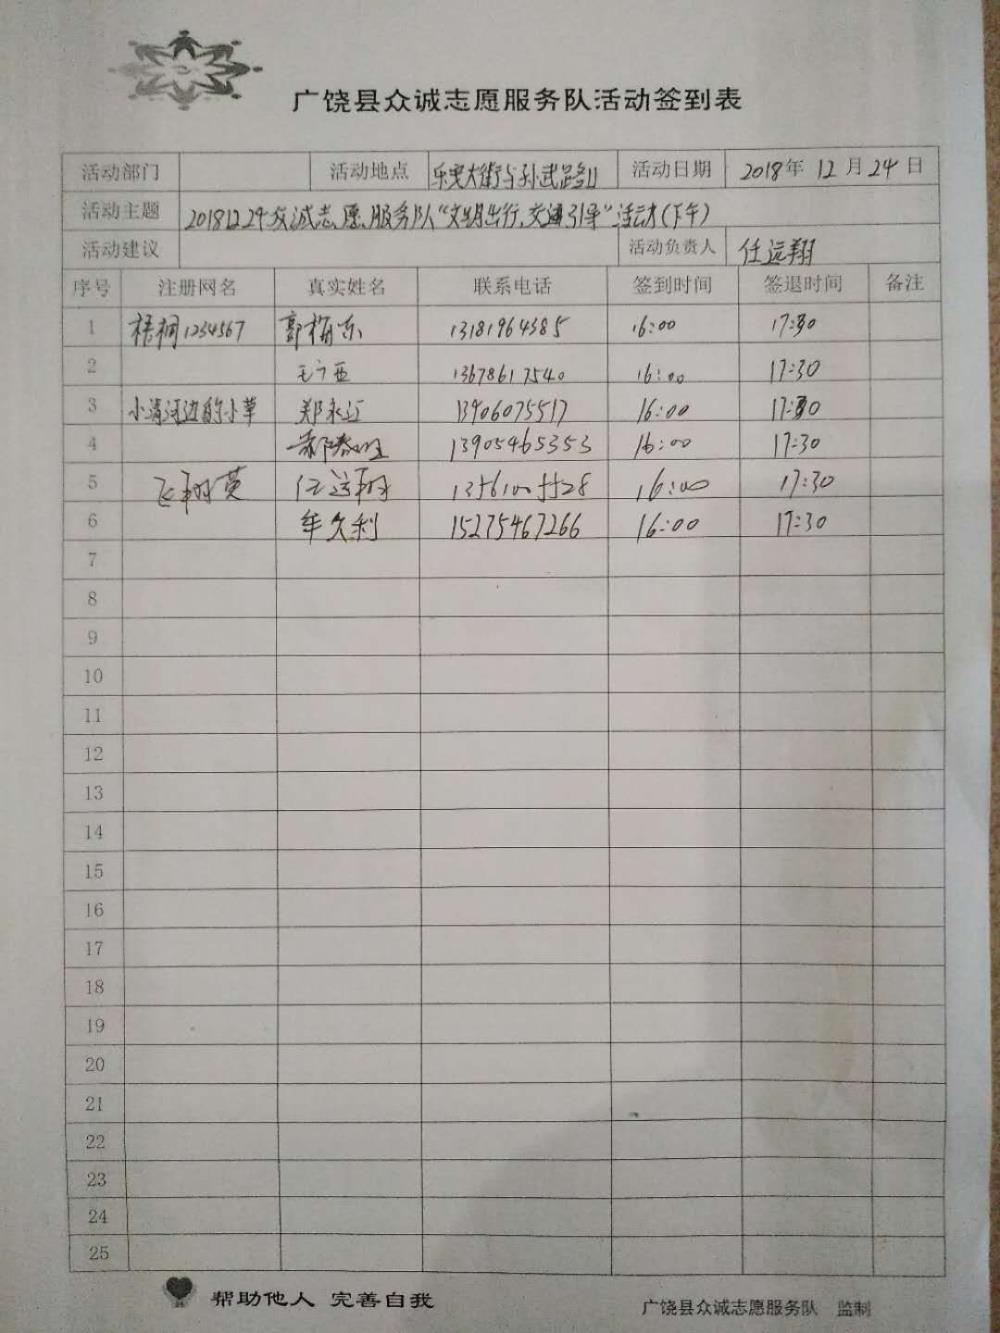 广饶县众诚志愿服务队活动签到表
活动部门 活动地点 乐安大街与孙武路口 活动日期 2018年12月24日
活动主题 20181224众诚志愿服务队“文明出行,交通引导”活动(下午)
活动建议 活动负责人 任远翔
序号 注册网名 真实姓名 联系电话 签到时间 签退时间 备注
1 梧桐1234567 郭梅东 13181964385 16:00 17:30
2 13678617540 16:00 17:30
3 小清河边的小草 郑永江 13906075517 16:00 17:30
4 13905465353 16:00 17:30
5 飞翔 任远翔 16:00 17:30
6 牟久利 15275467266 16:00 17:30
7
8
9
10
11
12
13
14
15
16
17
18
19
20
21
22
23
24
25
帮助他人 完善自我
广饶县众诚志愿服务队 监制